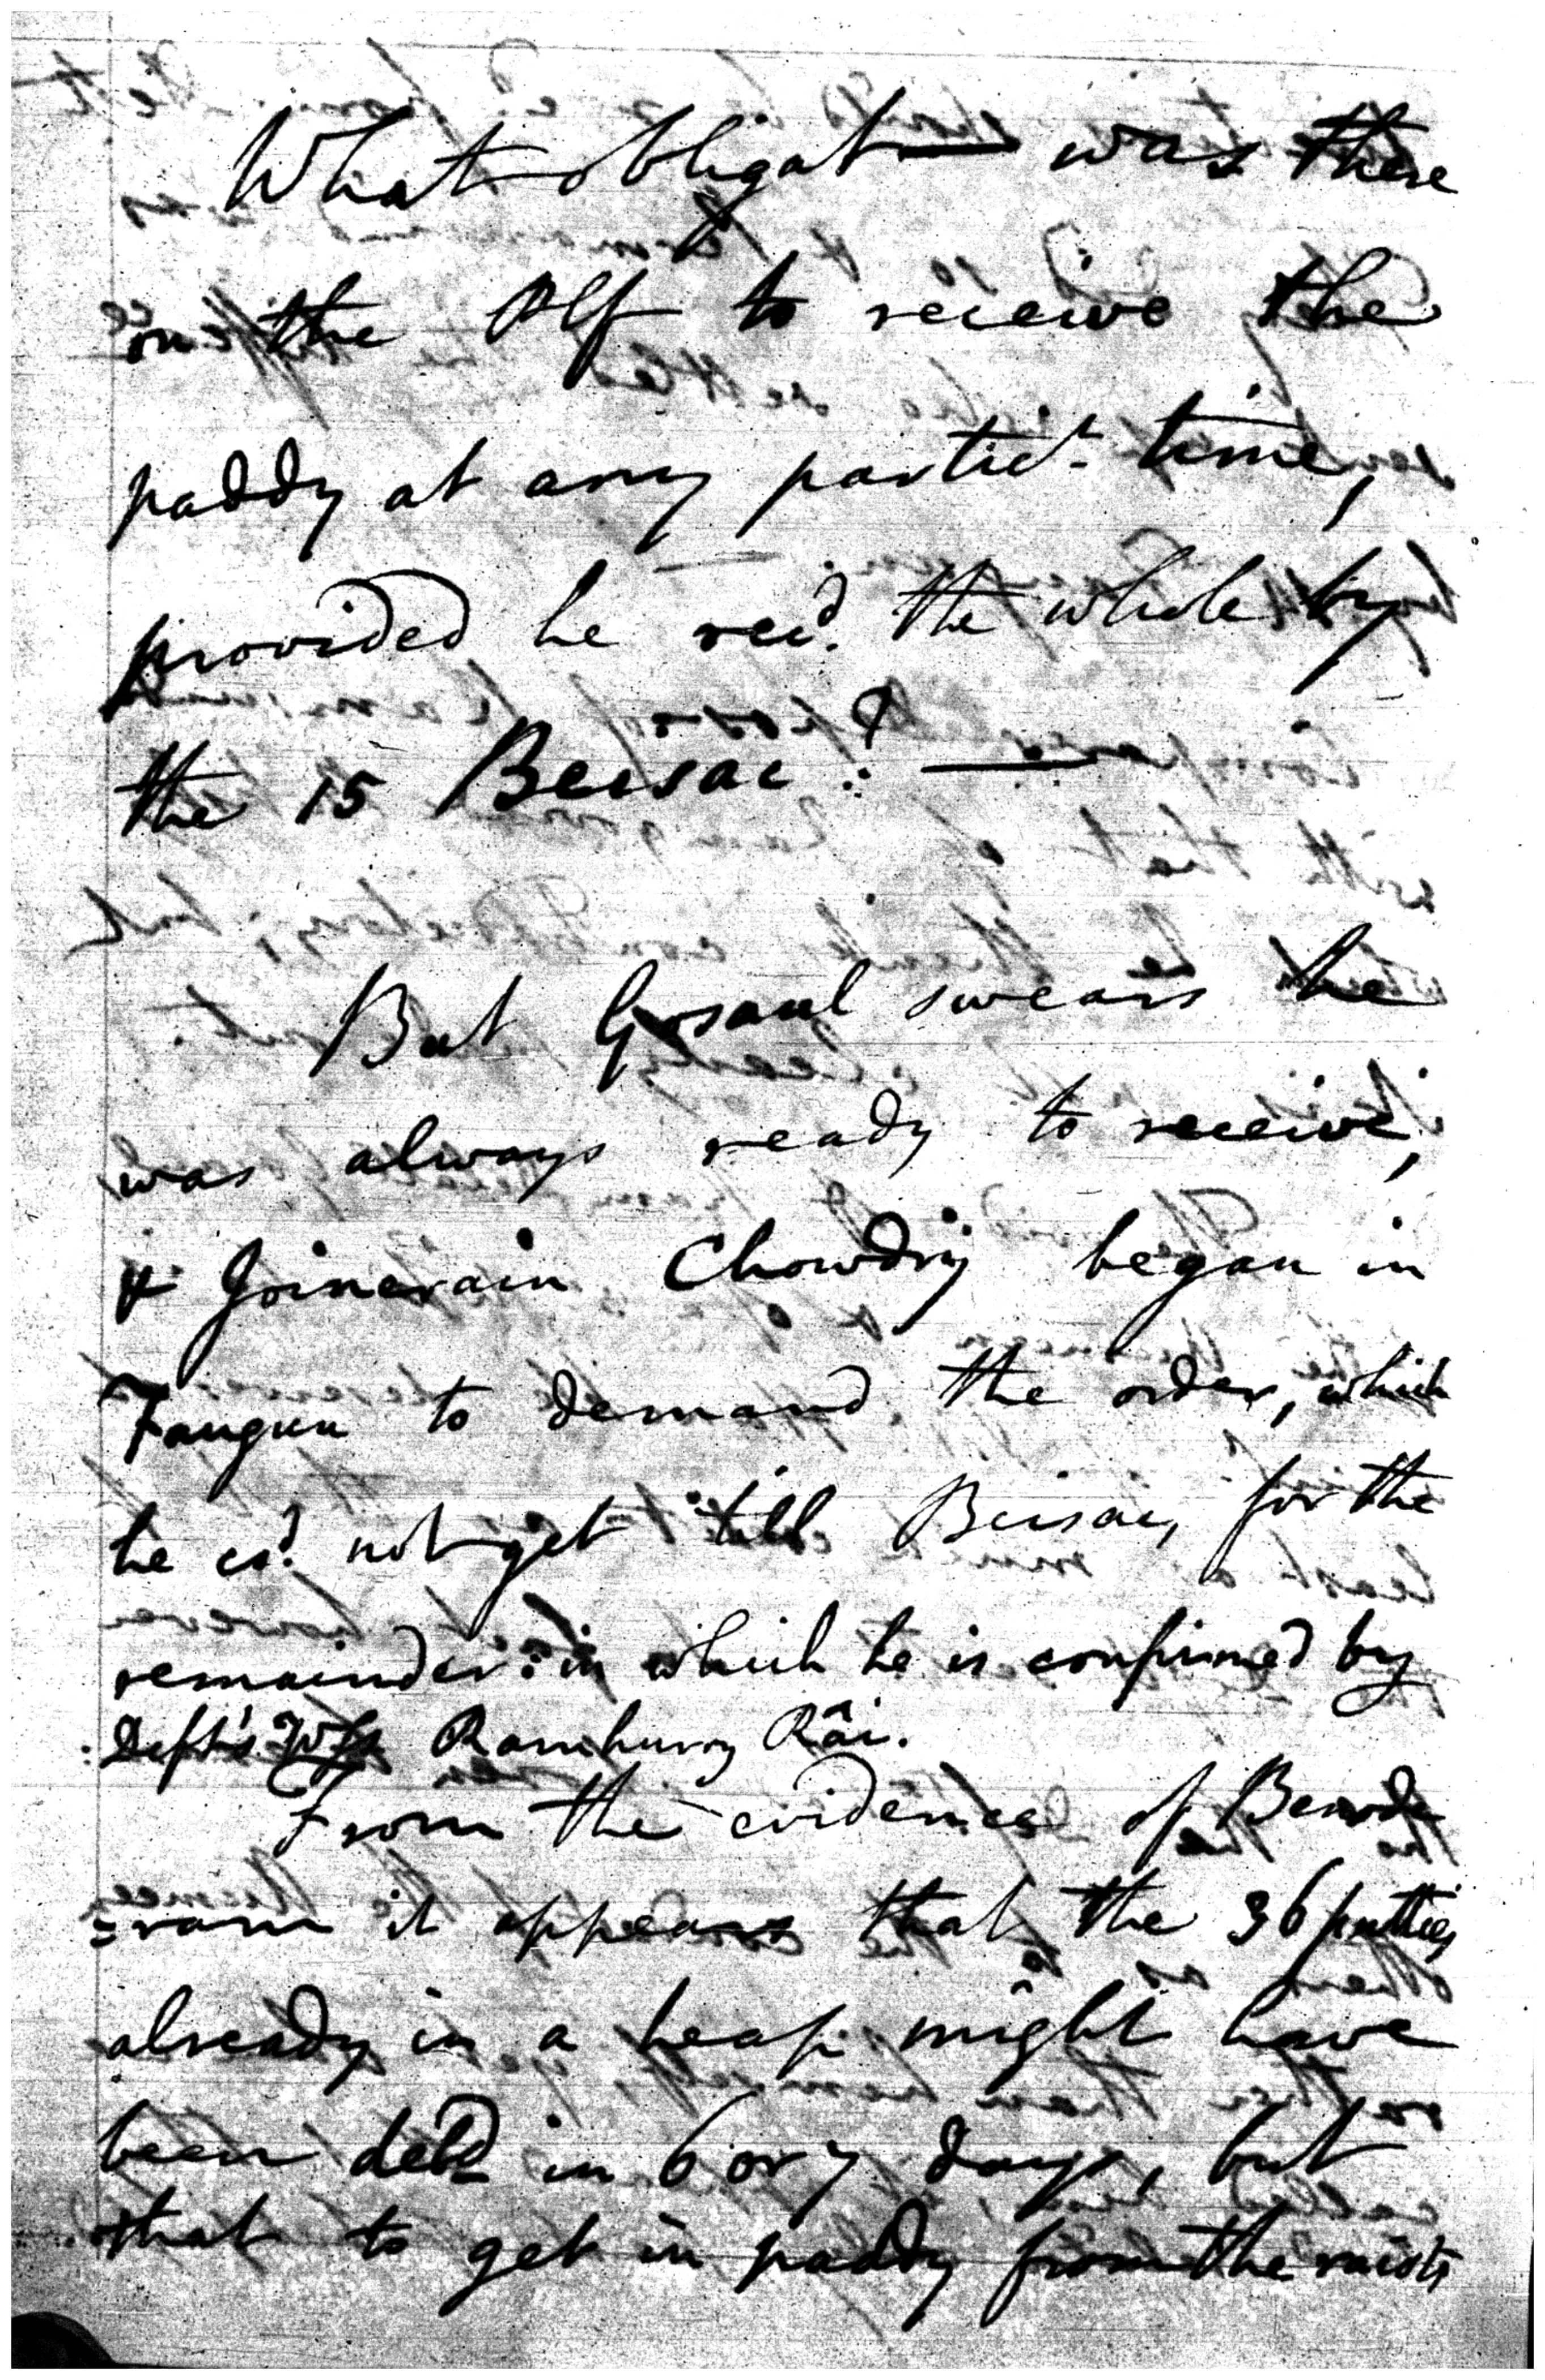 What obligat— was there
on the Plf to receive the
paddy at any particr time,
provided he recd. the whole by
the 15 Beisac? —
But Gosaul swears he
was always ready to receive,
& Joinerain Chowdry began in
Faugun to demand the order, which
he cd. not get till Beisac, for the
remainder: in which he is confirmed by
Deft's Wss Ramhurry Râi.
From the evidence of
=ram it appears that the 36 putties
already in a heap might have
been deld in 6 or 7 days, but
that to get in paddy from the raiots